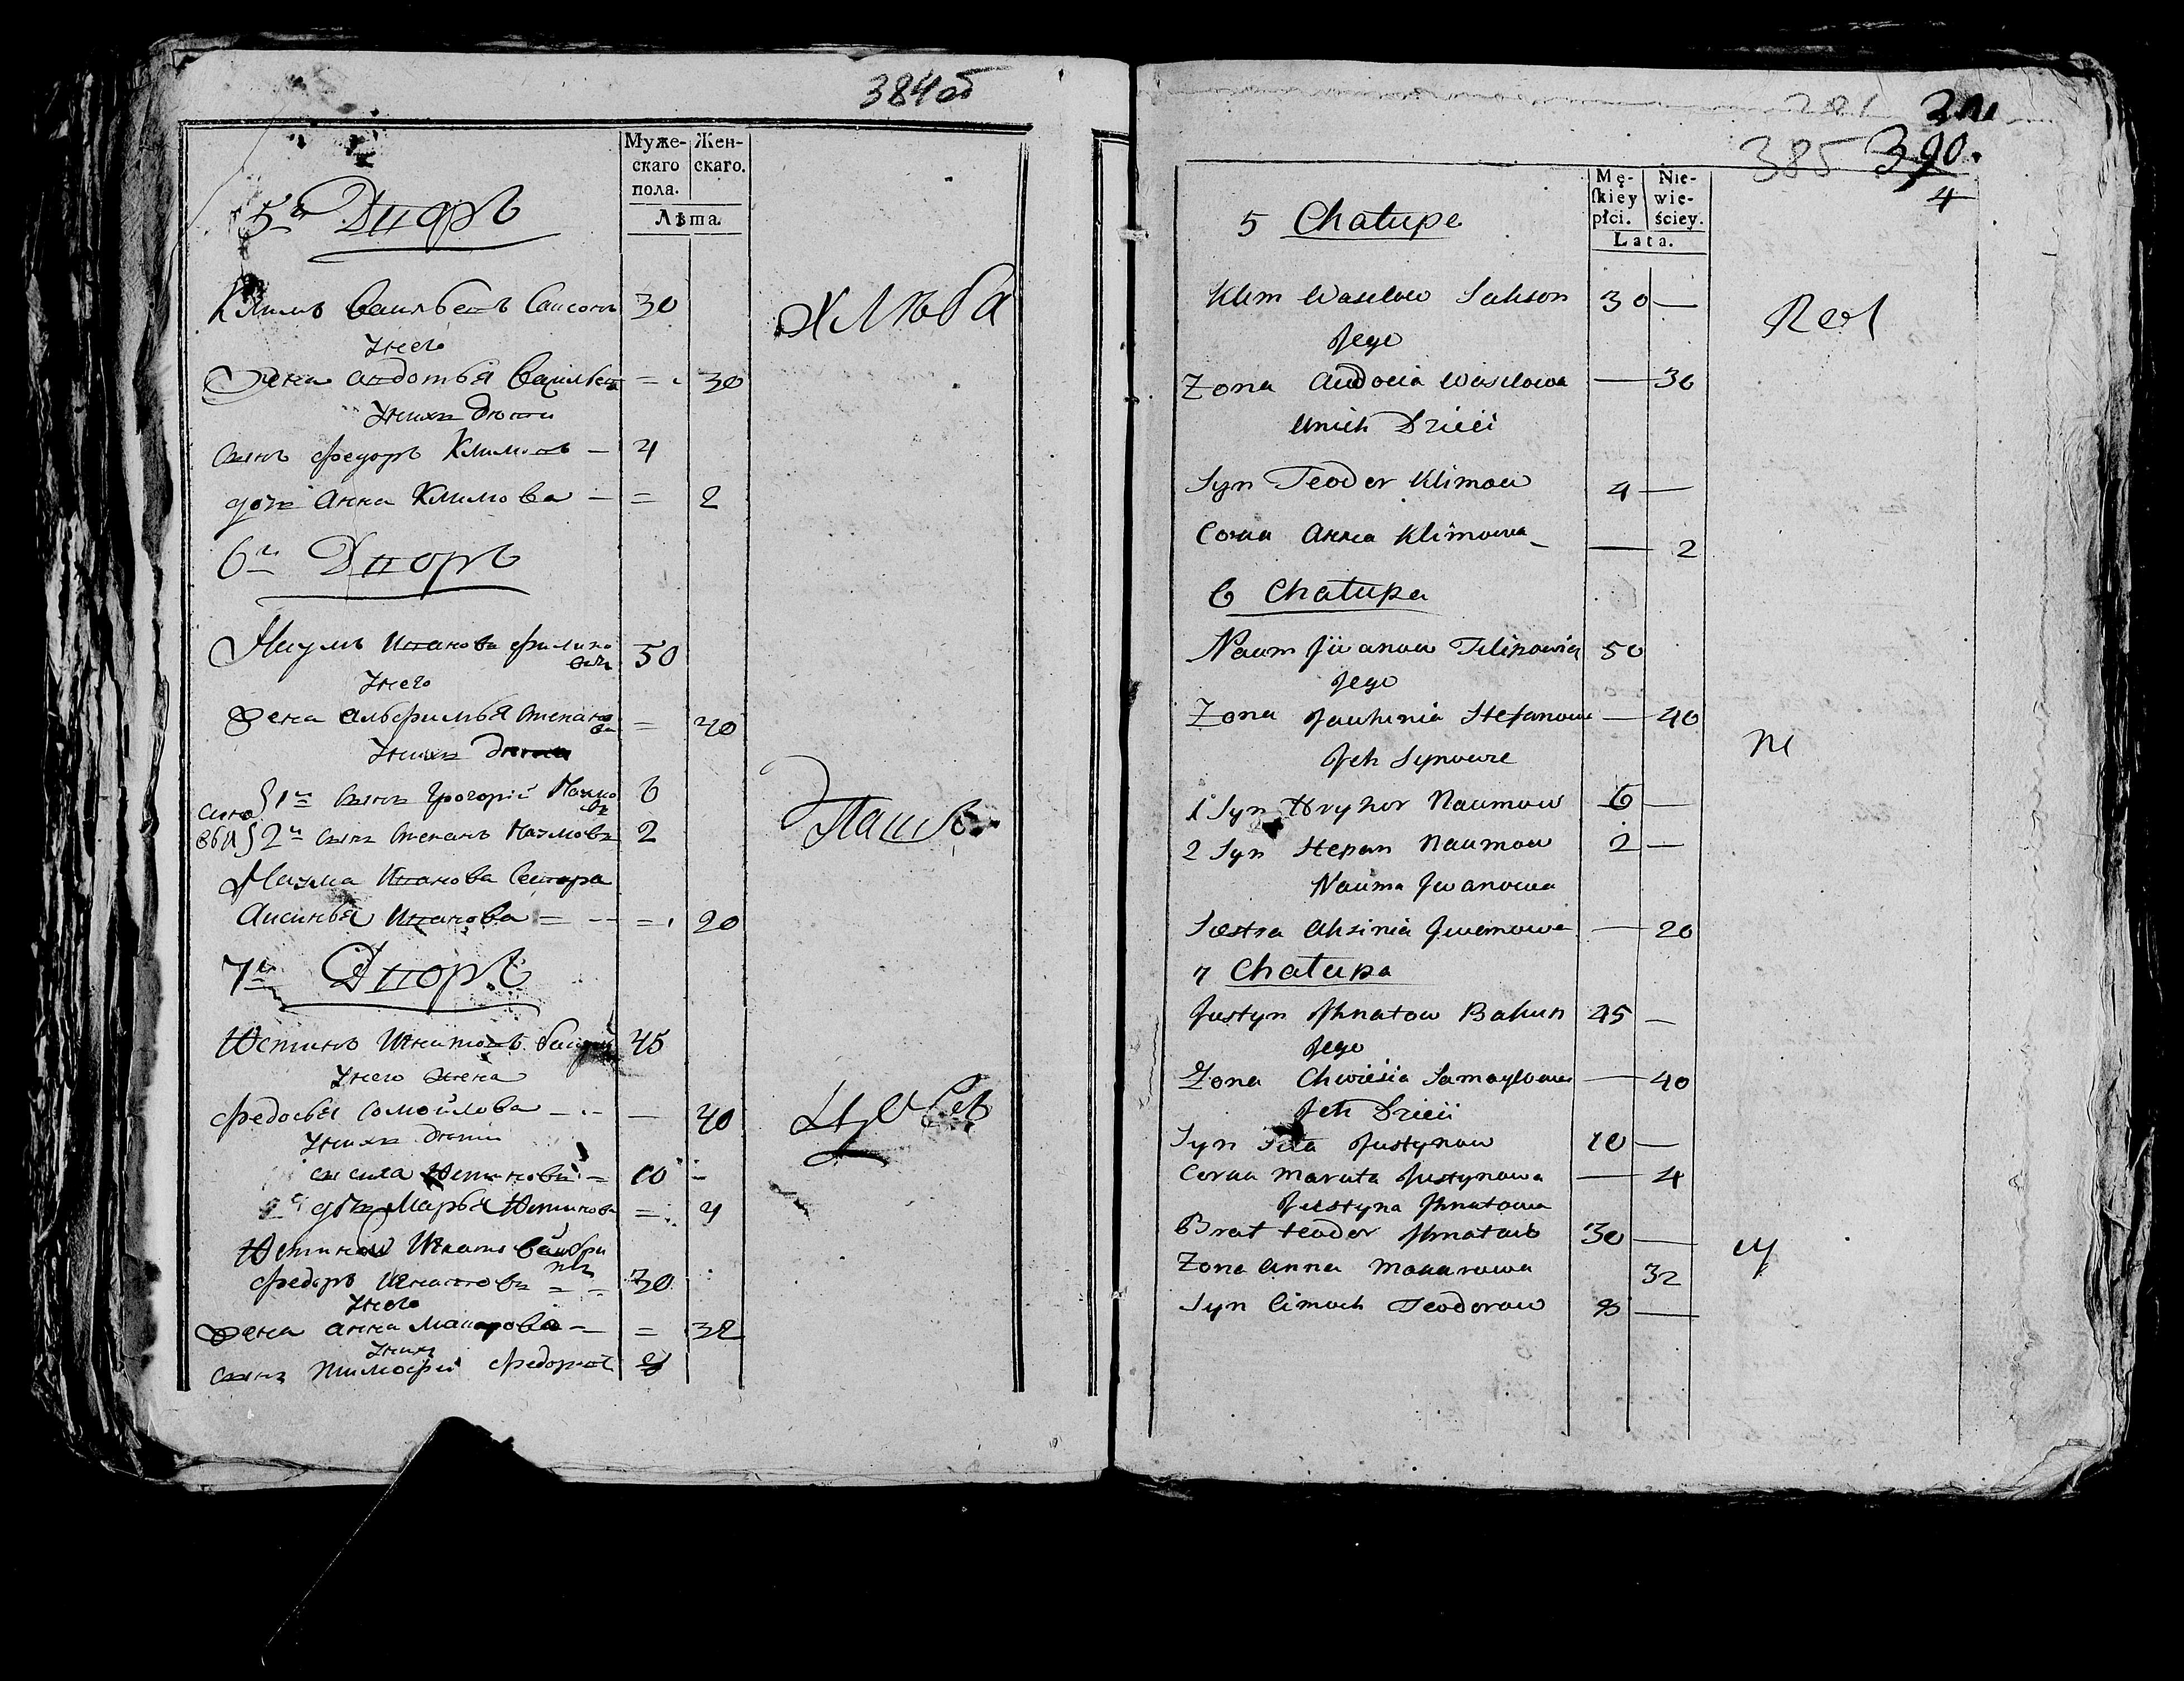 384об
Муже-
скаго
пола.
Жен-
скаго.
Лѣта.
5й Дворъ
Климъ Васильевъ Саксонъ 30
Унего
Жена Авдотья Васильева = 30
Унихъ дѣти
Сынъ Федоръ Климовъ — 4
дочь Анна Климова — = 2
6й Дворъ
Наумъ Ивановъ Филипо
вичъ 50
Унего
Жена Степано
ва = 40
Унихъ дѣти
сыно 1й Сынъ Грогорій Наумо
въ 6
вья 2й Сынъ Степанъ Наумовъ 2
Наума Иванова Сестра
Аксинья Иванова = -- = 20
7й Дворъ
Юстинъ Игнатовъ 45
Унего жена
Федосья Самойлова — — 40
Унихъ дѣти
Сила Юстиновъ = 10 -
дочь Марья Юстинова = 4
Юстина Игнатова
Федоръ Игнатовъ = = 30
Унего
Жена Анна Макарова — = 32
Унихъ
Сынъ Тимофей Федоровъ 8
Хлѣба
385 390.
4
Mę-
skiey
płci.
Nie-
wie-
ściey.
Lata.
5 Chałupa
Klim Wasilow Sakson 30 —
Jego
Zona Audocia Wasilowa — 30
Unich Dzieci
Syn Teodor Klimow 4 —
Corka Anna Klimowa — 2
6 Chałupa
Naum Jwanow Filipowicz 50
Jego
Zona Jauhinia Stefanowa — 40
Jch Synowie
1 Syn Hryhor Naumow 6 —
2 Syn Stepan Naumow 2 —
Nauma Jwanowa
Siostra Ahsinia Jwanowa — 20
7 Chałupa
Justyn Jhnatow Bakun 45 —
Jego
Zona Chwiesia Samoyłowa — 40
Jch Dzieci
Syn Siła Justynow 10 —
Corka Maruta Justynowa — 4
Justyna Jhnatowa
Brat teodor Jhnatow 30 —
Zona Anna Makarowa 32
Syn Cimoch Teodorow 8 —